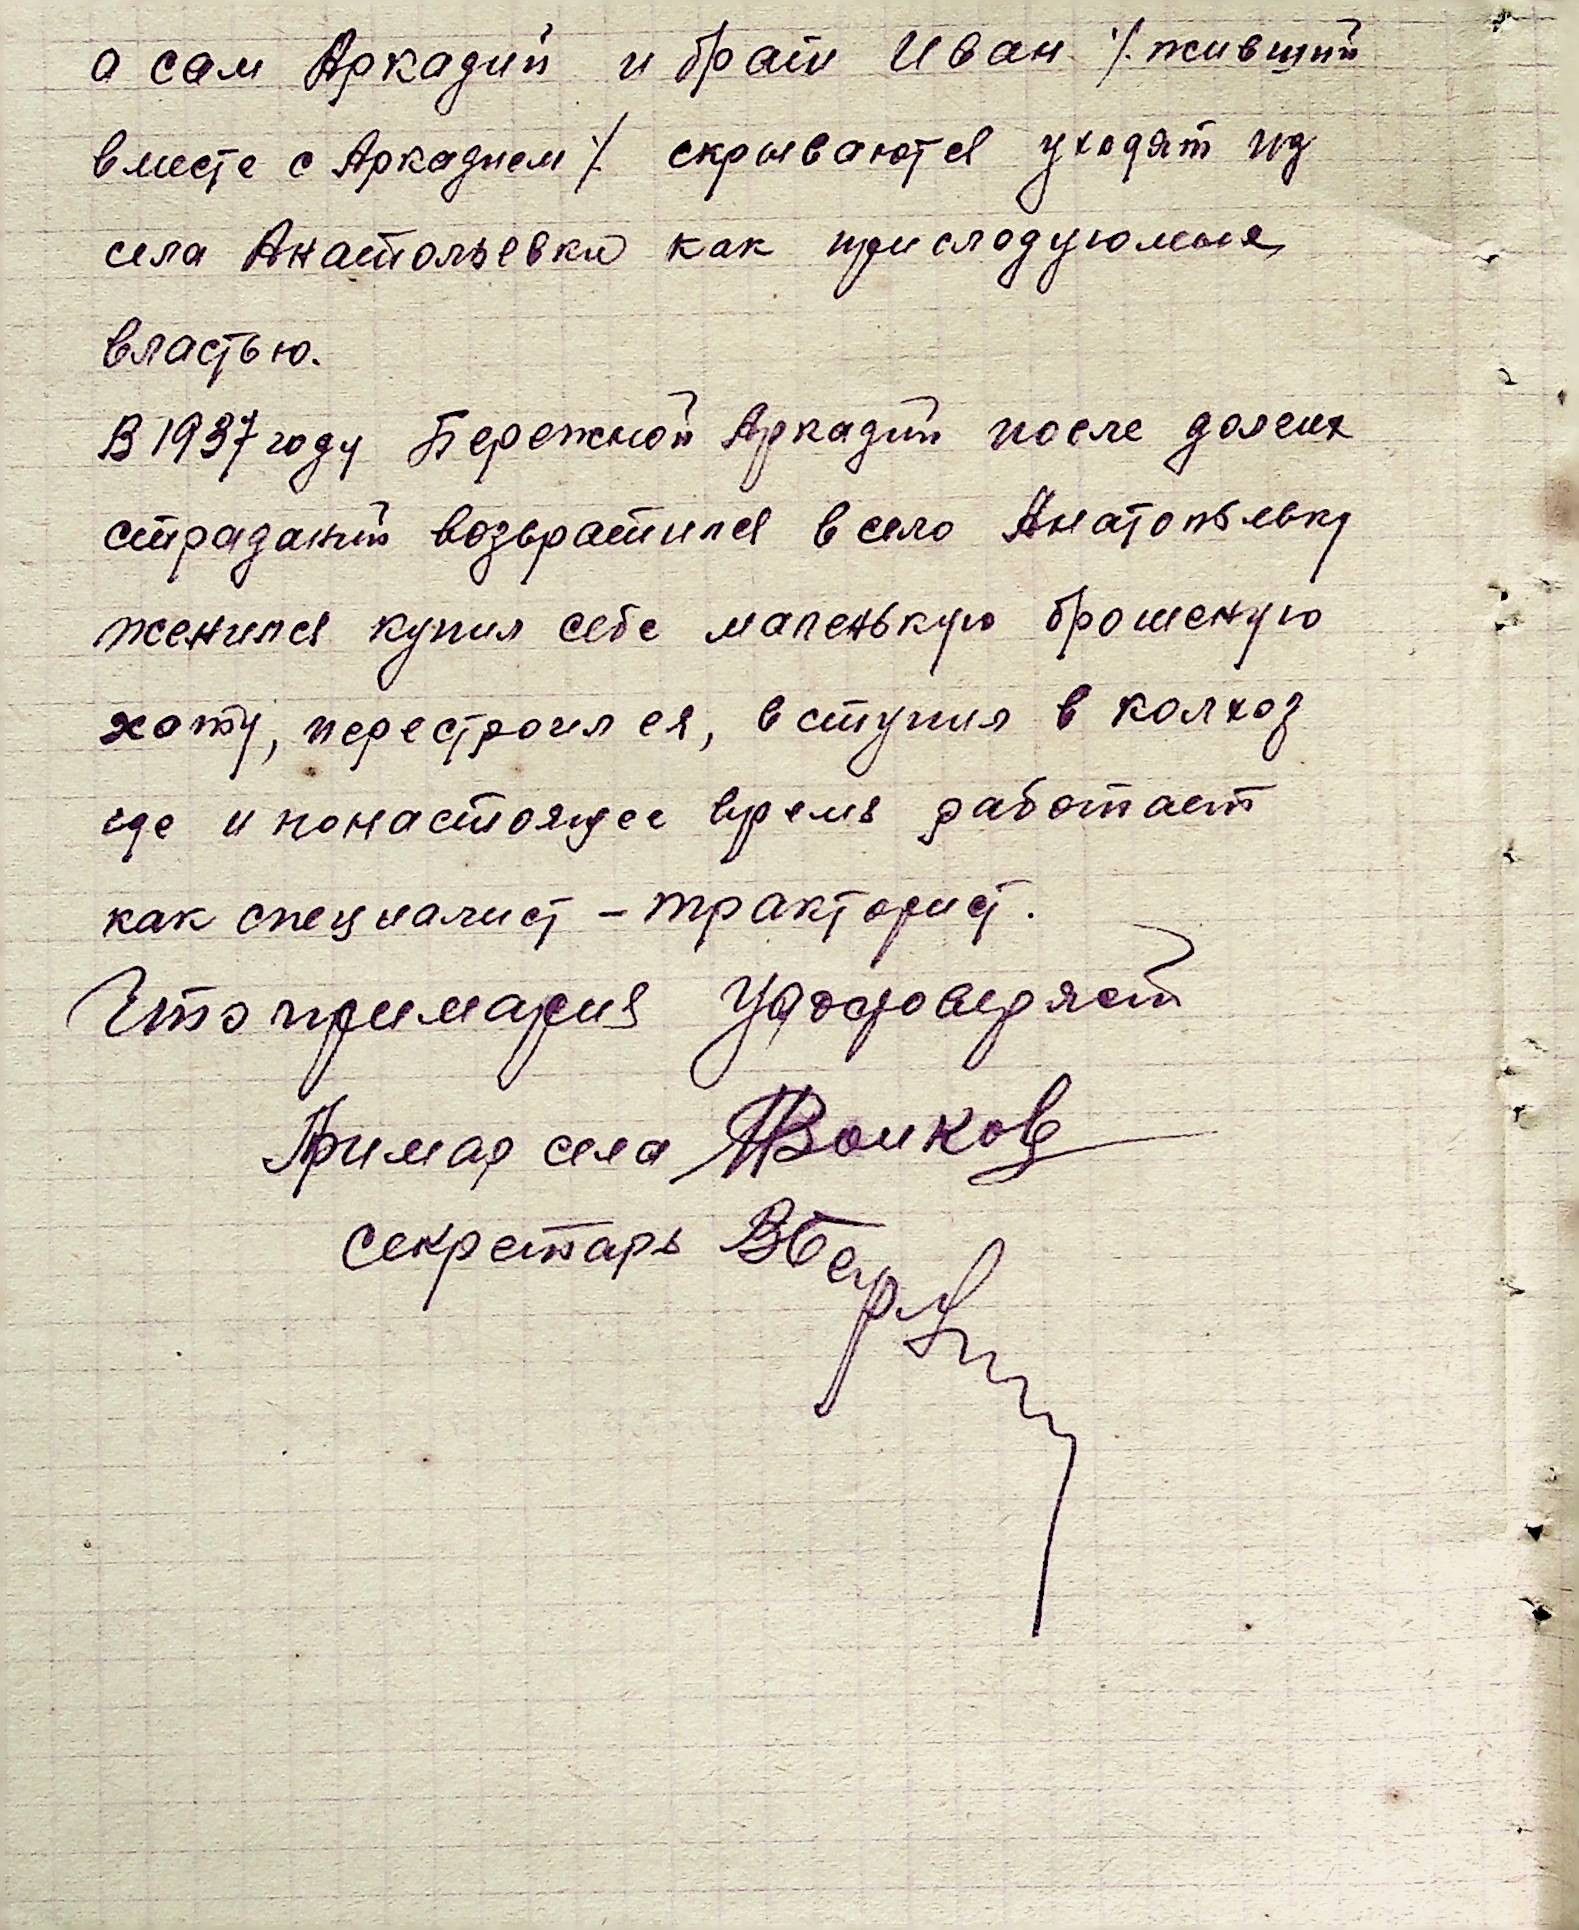 а сам Аркадий и брат Иван /. живший
вместе с Аркадием /. скрываются уходят из
села Анатольевки как прислодуюмыя
властью.
В 1937 году Бережной Аркадий после долгих
страданий возвратился в село Анатольевку
женился купил себе маленькую брошеную
хату, перестроился, вступил в колхоз
где и понастоящее время работает
как специалист – тракторист.
Что примария удостоверяет
Примар села Волков
секретарь